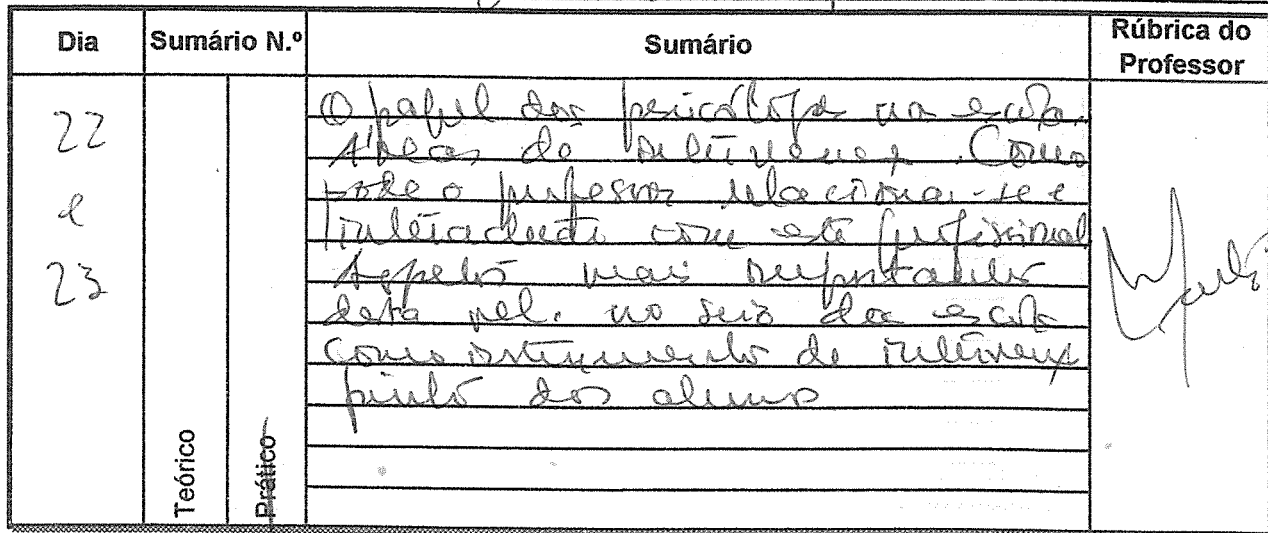 Dia Sumário N.º Sumário Rúbrica do Professor
22 e 23
O papel dos psicólogos na escola.
Áreas de intervenção. Como
pode o professor relacionar-se e
com este profissional
mais importantes
desta rel. no seio da escola
como instrumento de intervenção
junto dos alunos
Teórico
Prático